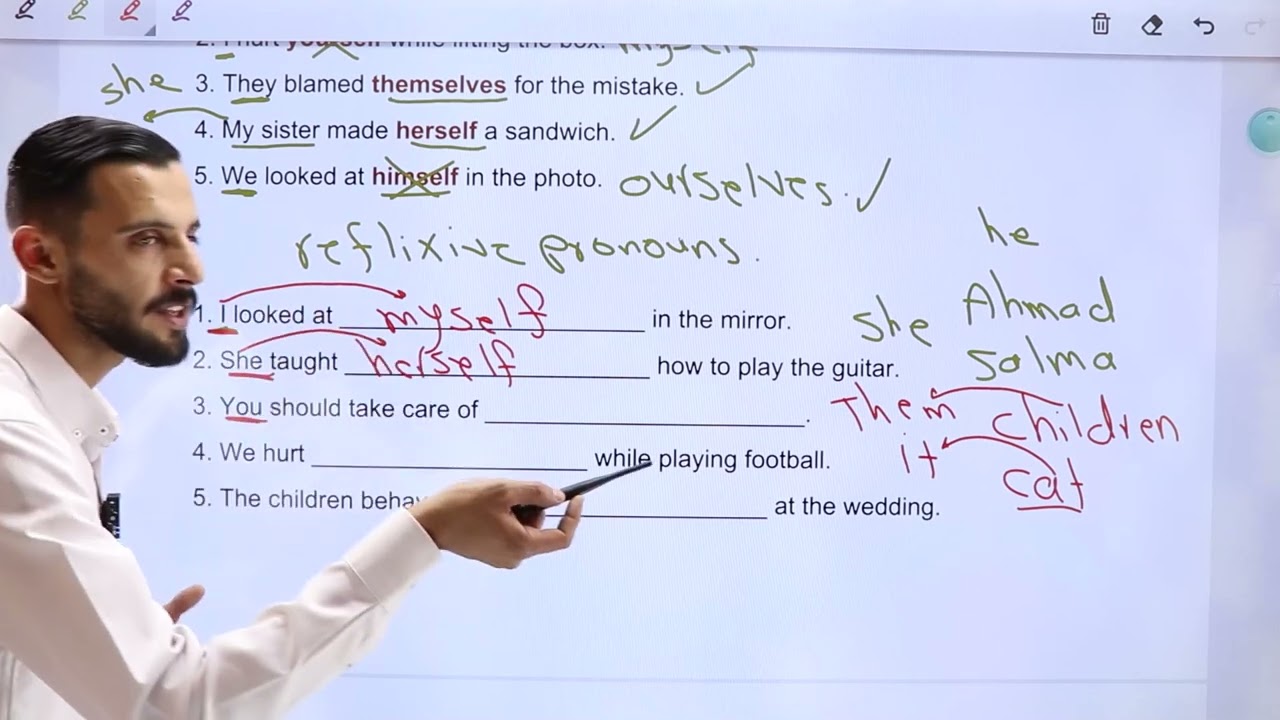 2. I hurt yourself while lifting the box. myself
she 3. They blamed themselves for the mistake.
4. My sister made herself a sandwich.
5. We looked at himself in the photo. ourselves.
reflixive pronouns.
he
1. I looked at myself in the mirror.
she Ahmad
2. She taught herself how to play the guitar.
salma
3. You should take care of .
Them children
4. We hurt while playing football.
it cat
5. The children beha at the wedding.